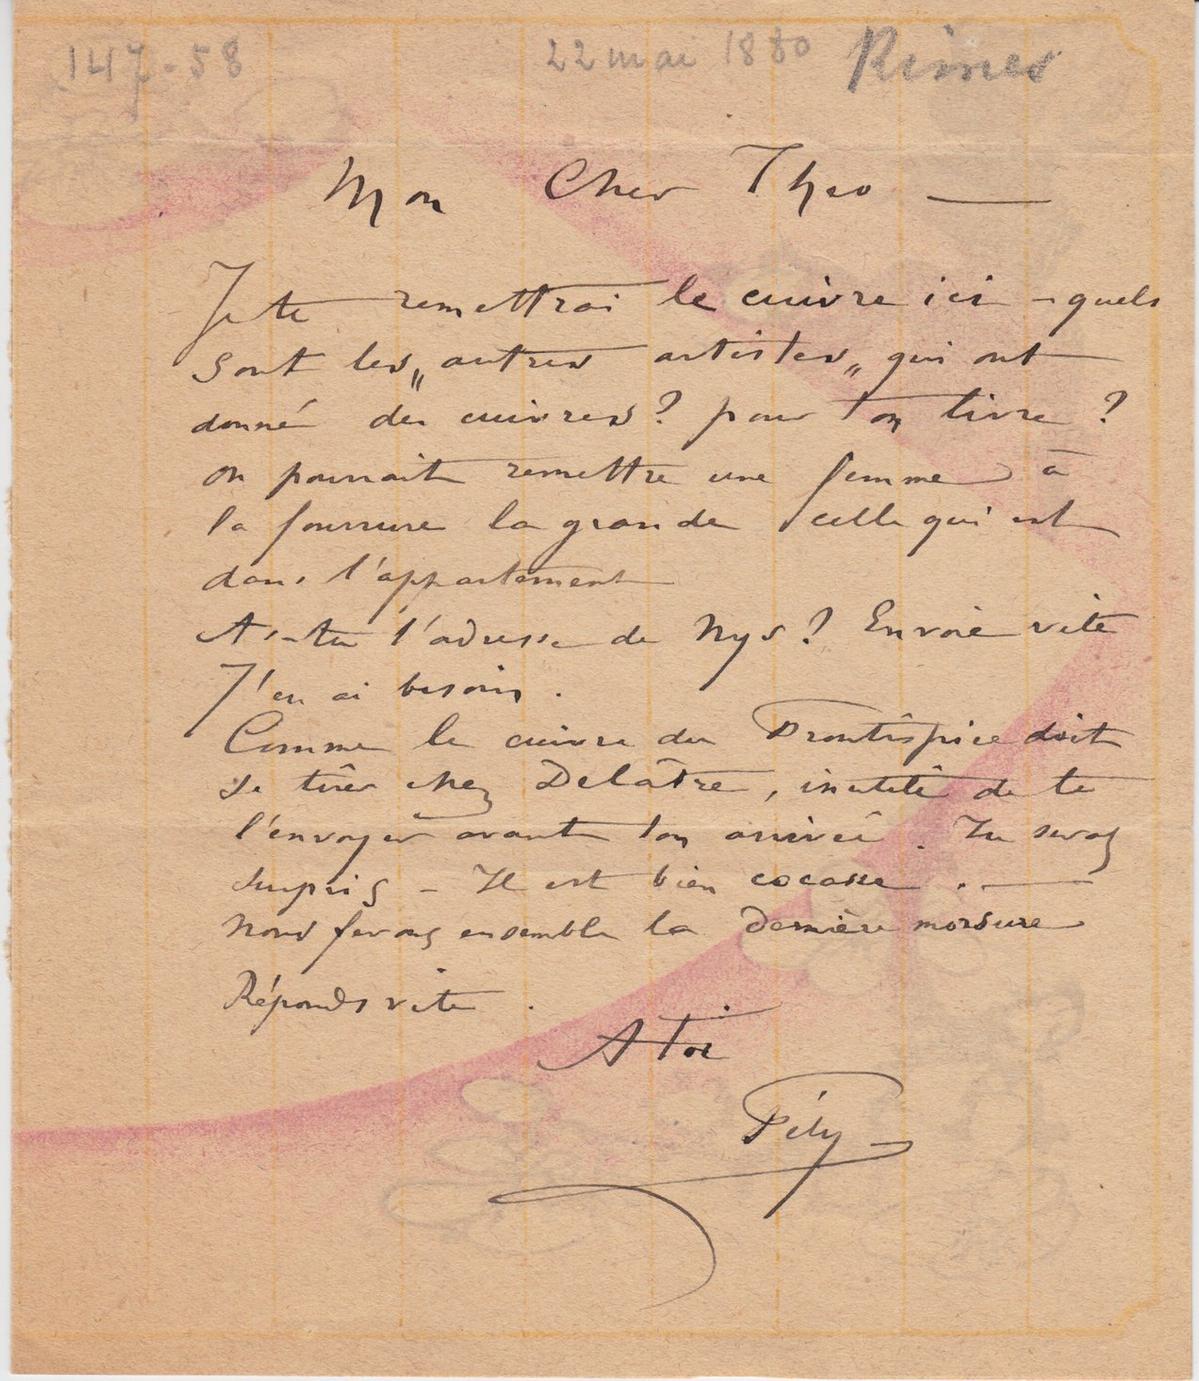 147-58 22 mai 1880 Rimes
Mon Cher Theo —
Je te remettrai le cuivre ici – quels
sont les „autres artistes„ qui ont
donné des cuivres? pour ton livre ?
on pourrait remettre une femme à
la fourrure la grande celle qui est
dans l'appartement
As-tu l'adresse de Nys? Envoie vite
J'en ai besoin .
Comme le cuivre du Frontispice doit
se tirer chez Delâtre, inutile de te
l'envoyer avant ton arrivée. Tu seras
surpris – Il est bien cocasse . —
Nous ferons ensemble la dernière morsure
Réponds vite .
A Toi
Fély